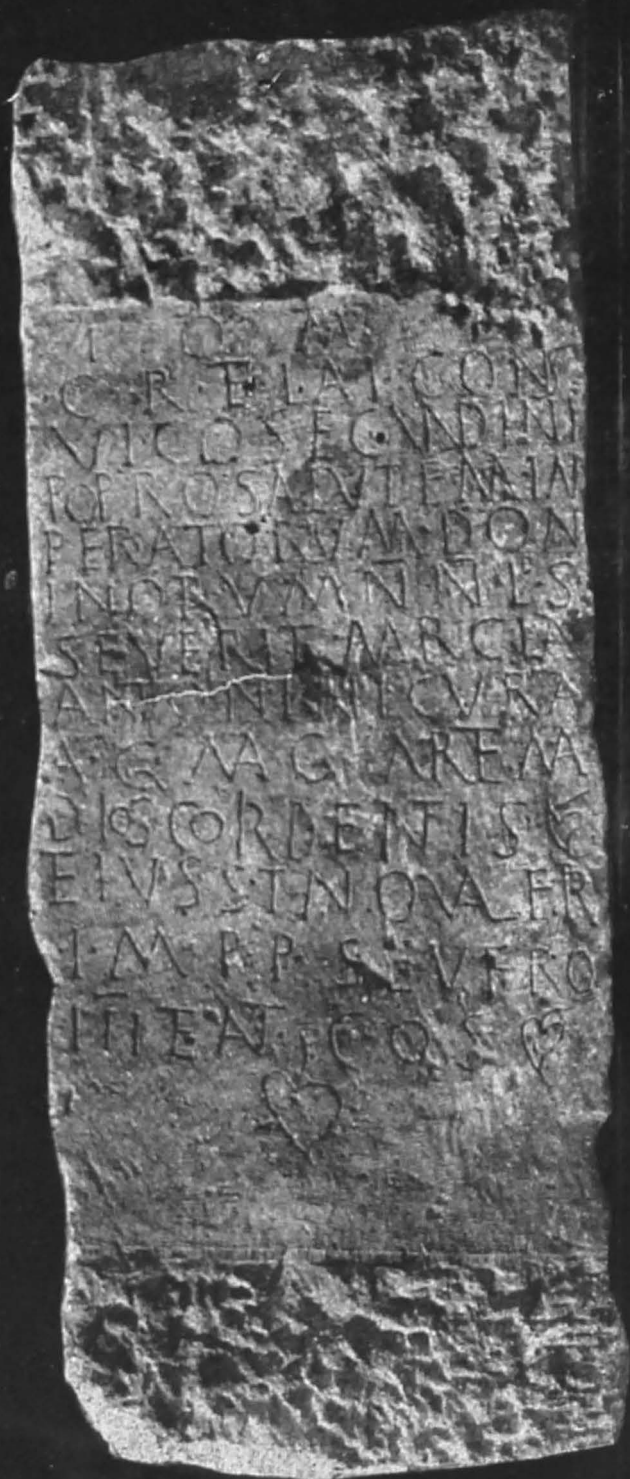 I O M
C · R · ET LAI CON
VICO SECVNDINI
POPROSALVTEM IN
PERATORVM · DON
INORVM N N · L · S
SEVERI ET MARCIA
ANTONINI CVRA
A G MAG MAREM
DIOSCORDENTIS
EIVSST NOVA FR
I · M · P · P · SEVERO
III ET AT · COS